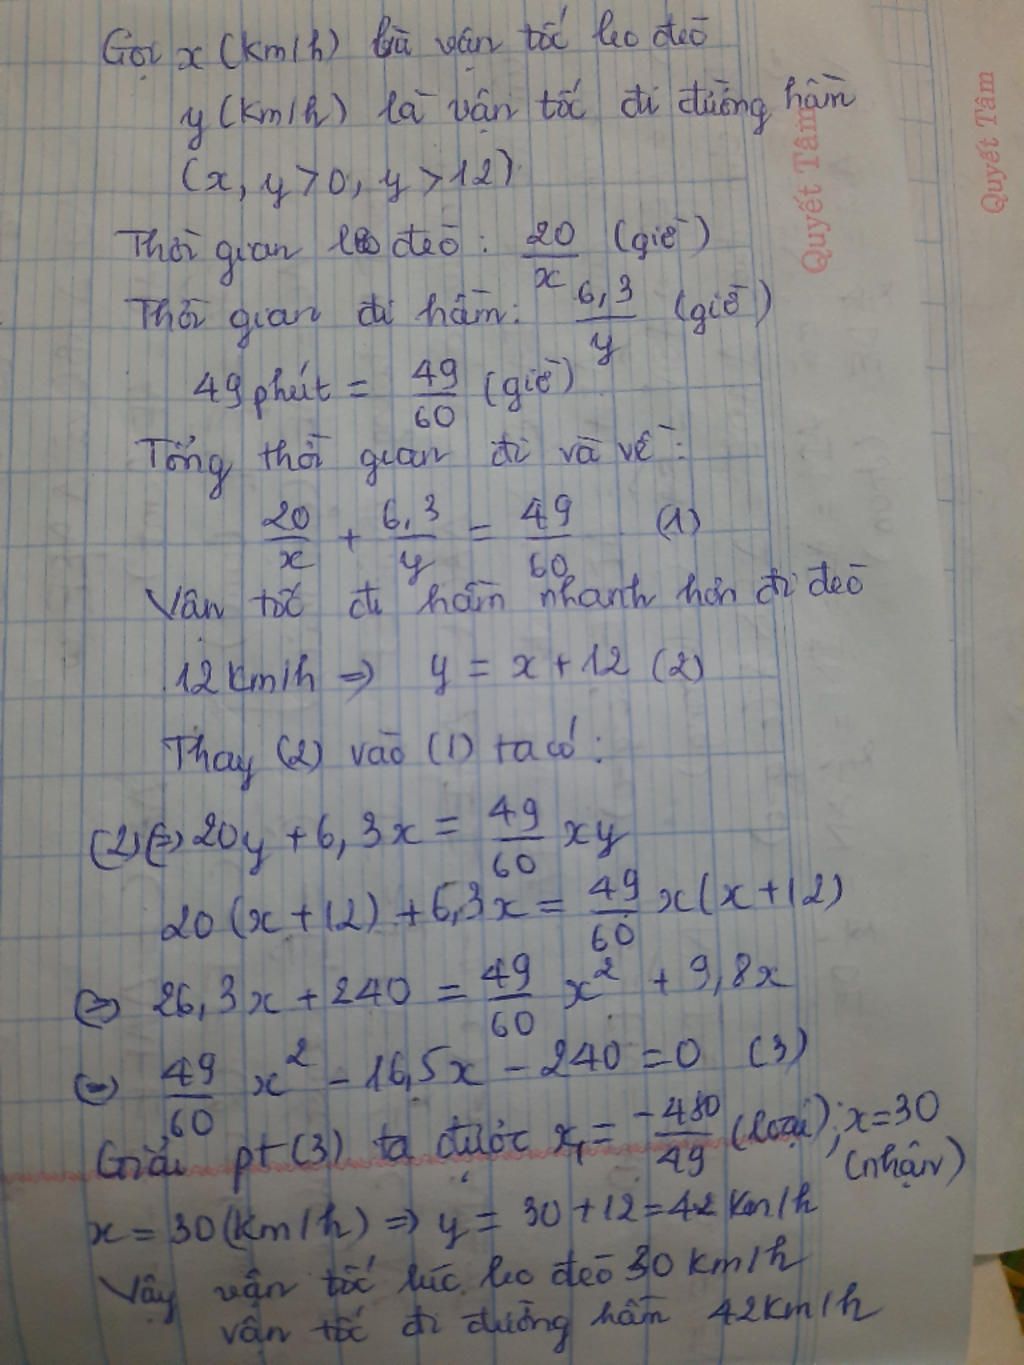 Gọi x (km/h) là vận tốc leo đèo
y (km/h) là vận tốc đi đường hầm
(x, y > 0, y > 12)
Thời gian leo đèo: 20/x (giờ)
Thời gian đi hầm: 6,3/y (giờ)
49 phút = 49/60 (giờ)
Tổng thời gian đi và về:
20/x + 6,3/y = 49/60 (1)
Vận tốc đi hầm nhanh hơn đi đèo
12 km/h => y = x + 12 (2)
Thay (2) vào (1) ta có:
(2) (=) 20y + 6,3x = 49/60 xy
20(x + 12) + 6,3x = 49/60 x(x + 12)
(=) 26,3x + 240 = 49/60 x² + 9,8x
(=) 49/60 x² - 16,5x - 240 = 0 (3)
Giải pt (3) ta được x₁ = -480/49 (loại); x = 30
(nhận)
x = 30 (km/h) => y = 30 + 12 = 42 km/h
Vậy vận tốc lúc leo đèo 30 km/h
vận tốc đi đường hầm 42 km/h
Quyết Tâm
Quyết Tâm